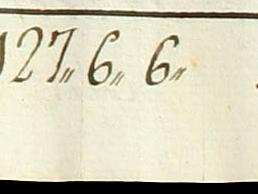 127〃 6〃 6〃